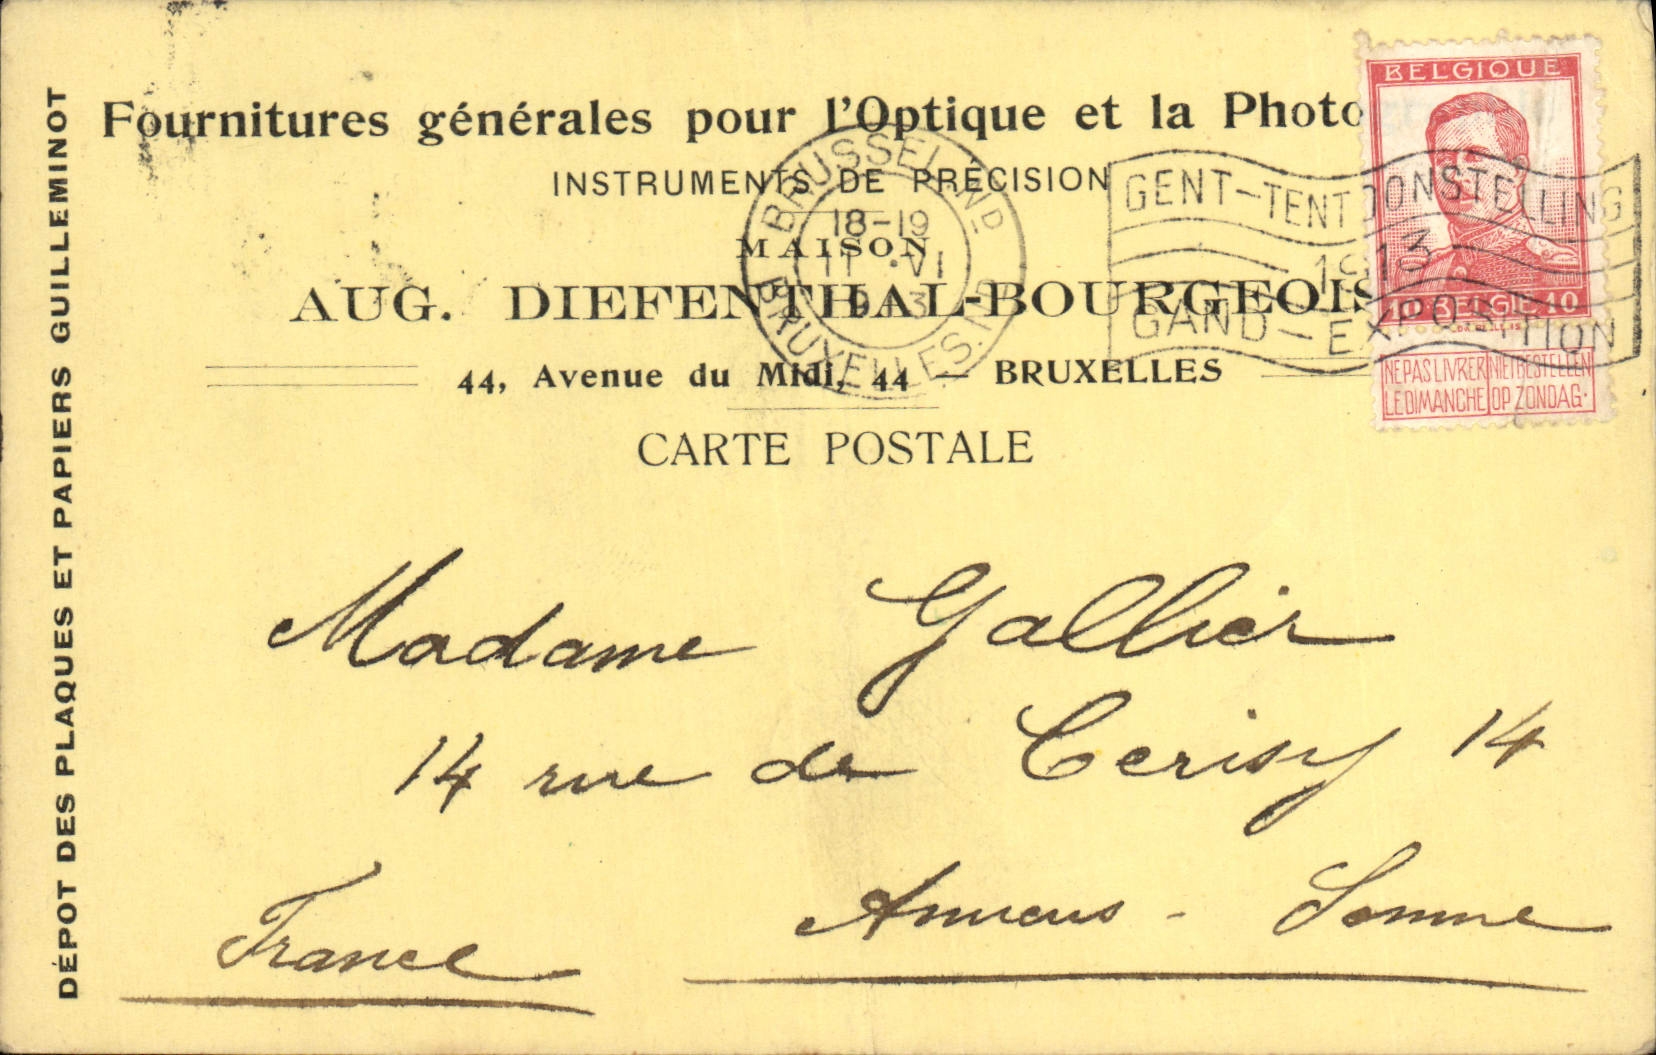 DÉPOT DES PLAQUES ET PAPIERS GUILLEMINOT
Fournitures générales pour l'Optique et la Photo
INSTRUMENTS DE PRÉCISION
MAISON
AUG. DIEFENTHAL-BOURGEOIS
44, Avenue du Midi, 44 — BRUXELLES
CARTE POSTALE
BRUSSEL ND
18-19
11 VI
BRUXELLES
GENT-TENTOONSTELLING
1913
GAND-EXPOSITION
BELGIQUE
10 BELGIE 10
NE PAS LIVRER LE DIMANCHE
NIET BESTELLEN OP ZONDAG.
Madame Gallier
14 rue de Cerisy 14
Amiens - Somme
France